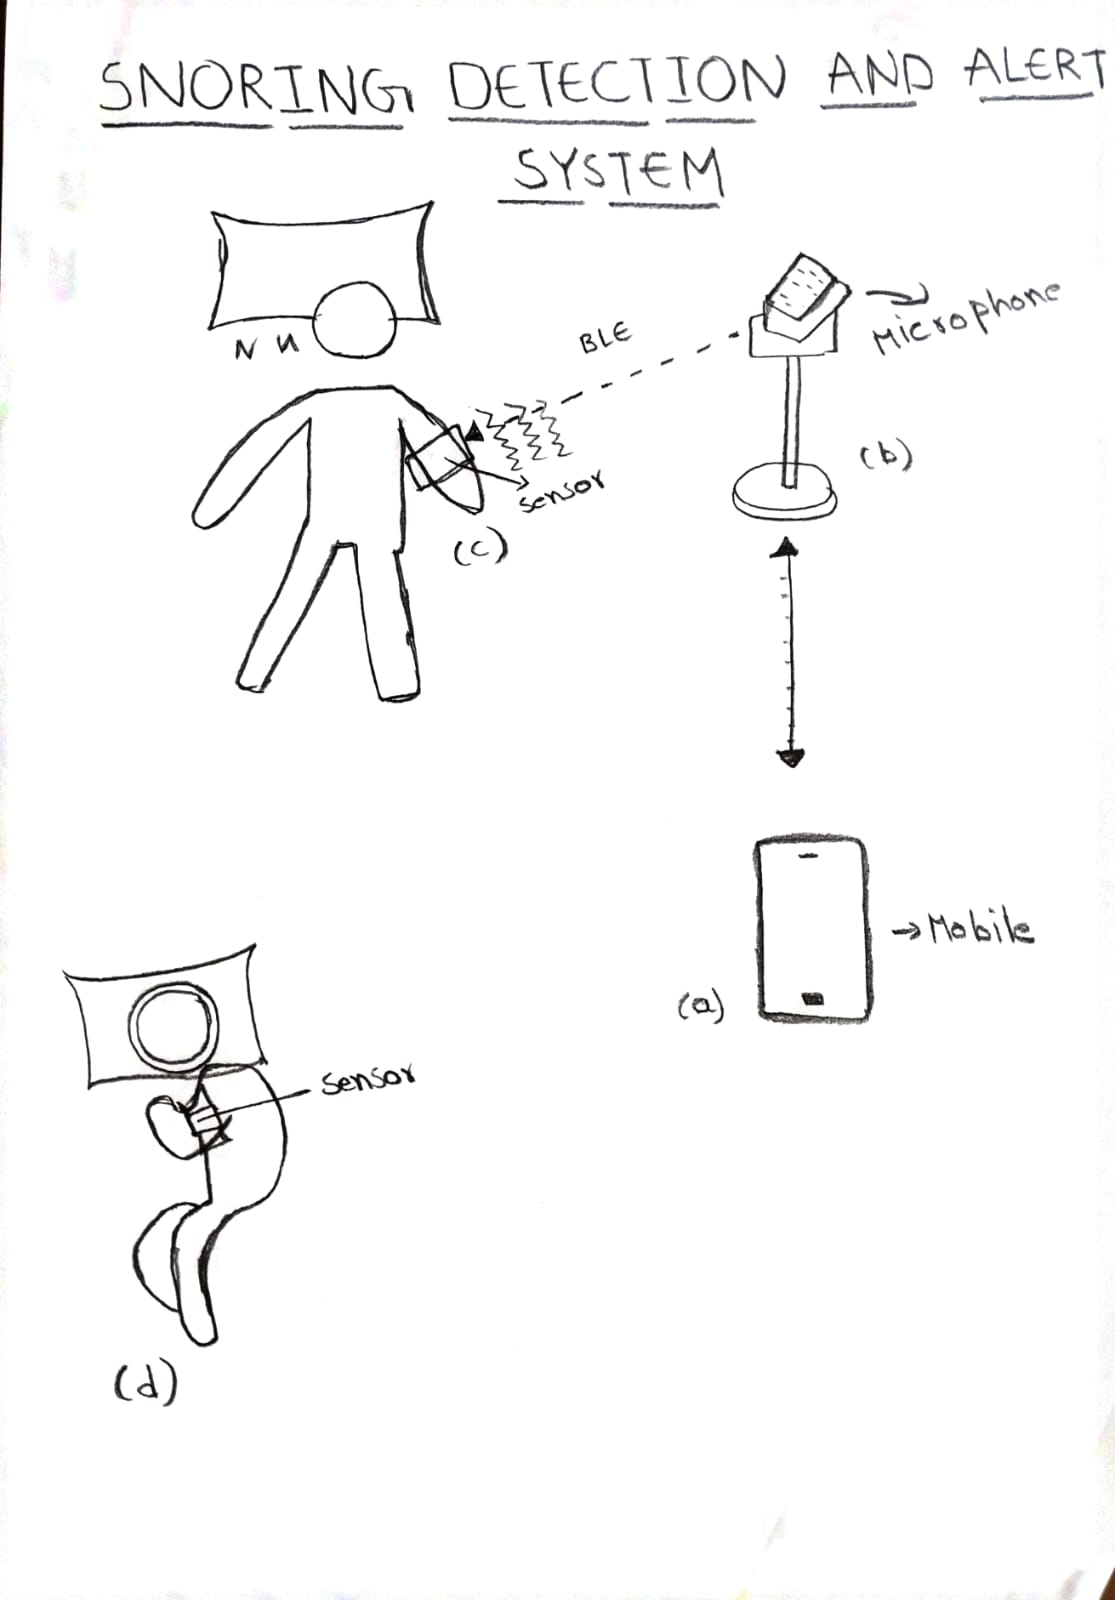 SNORING DETECTION AND ALERT
SYSTEM
N N
BLE
Microphone
(b)
sensor
(c)
Mobile
(a)
Sensor
(d)